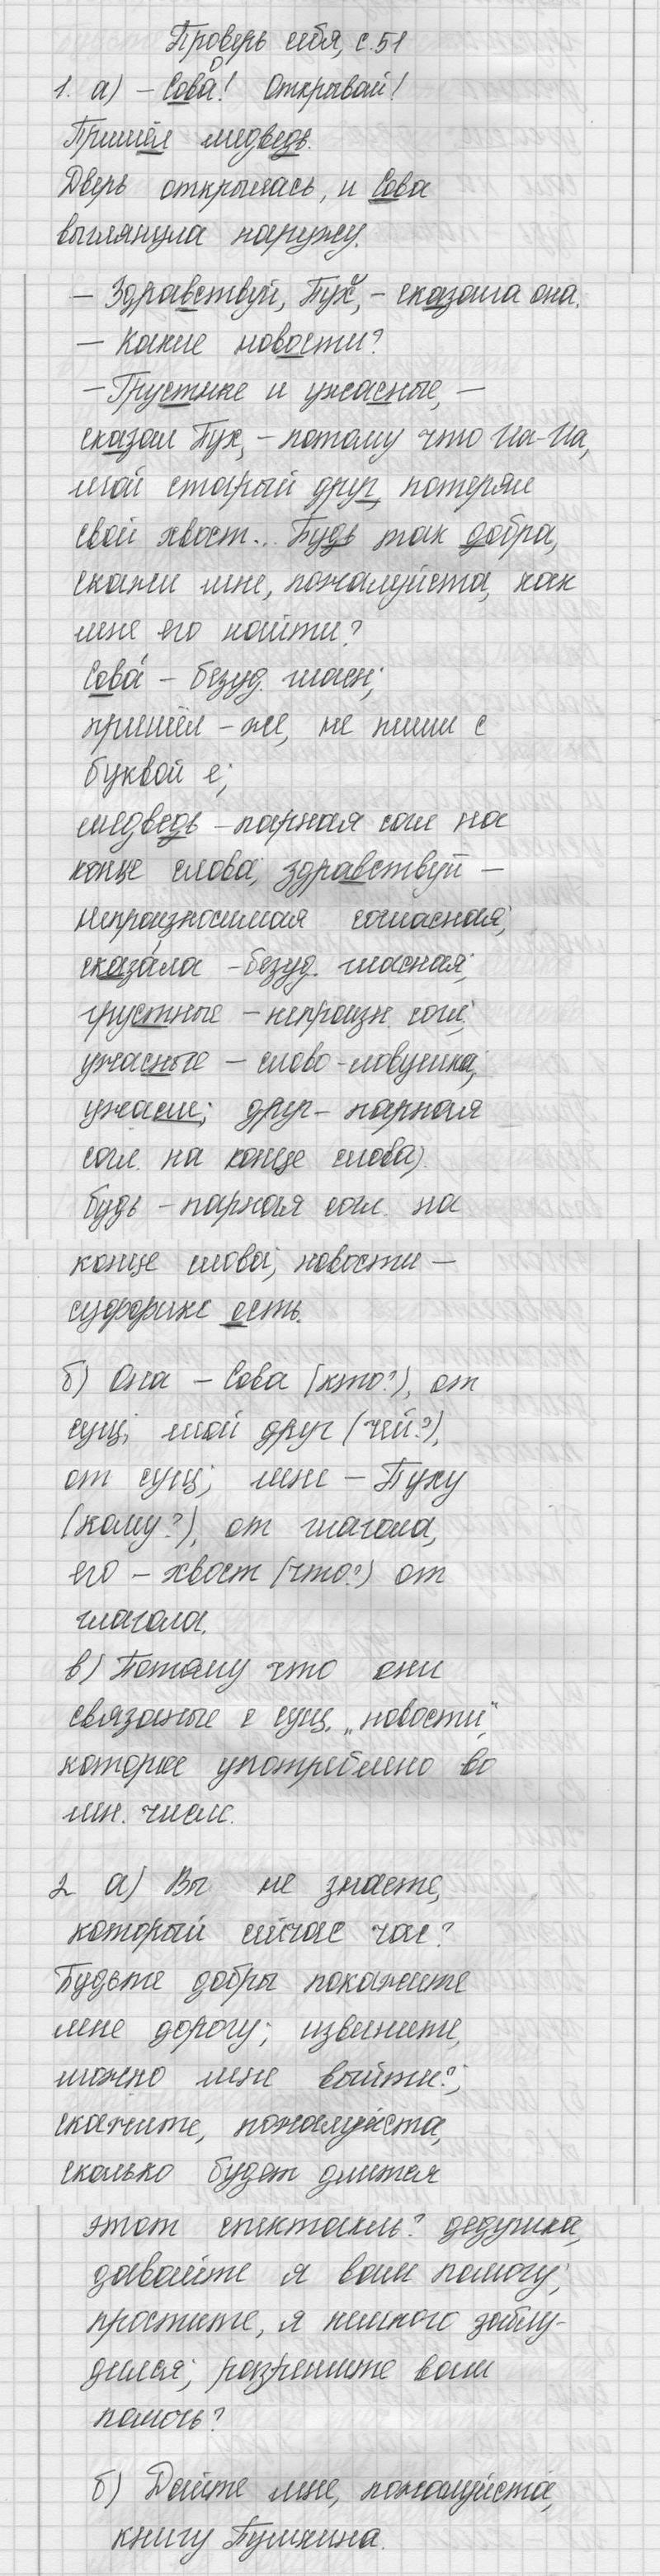 Проверь себя, с. 51
1. а) – Сова! Открывай!
Пришёл медведь.
Дверь открылась, и Сова
выглянула наружу.
– Здравствуй, Пух, – сказала она.
– Какие новости?
– Грустные и ужасные, –
сказал Пух, – потому что Иа-Иа,
мой старый друг, потерял
свой хвост... Будь так добра,
скажи мне, пожалуйста, как
мне его найти?
Сова́ – безуд. гласн;
пришёл – же, не пиши с
буквой е;
медведь – парная согл на
конце слова; здравствуй –
непроизносимая согласная;
сказа́ла – безуд. гласная;
грустные – непроизн. согл;
ужасные – слово-ловушка;
друг – парная
согл. на конце слова;
будь – парная согл. на
конце слова; новости –
суффикс есть.
б) Она – Сова (кто?), от
сущ; мой друг (чей?),
от сущ; мне – Пуху
(кому?), от глагола,
его – хвост (что?) от
глагола.
в) Потому что они
связаные с сущ. „новости",
которое употреблено во
мн. числе.
2 а) Вы не знаете,
который сейчас час?
Будьте добры покажите
мне дорогу; извините,
можно мне выйти?;
скажите, пожалуйста,
сколько будет длится
этот спектакль? дедушка,
давайте я вам помогу;
простите, я немного заблу-
дился; разрешите вам
помочь?
б) Дайте мне, пожалуйста,
книгу Пушкина.